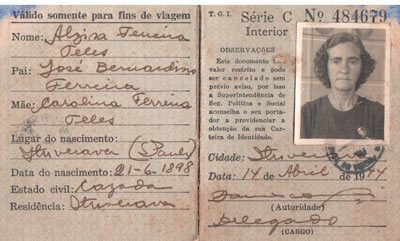 Válido somente para fins de viagem
Nome: Alzira Ferreira
Teles
Pai: José Bernardino
Ferreira
Mãe: Carolina Ferreira
Teles
Lugar do nascimento:
Ituverava (S. Paulo)
Data do nascimento: 21-6-1898
Estado civil: Cazada
Residência: Ituverava
T. G. I. Série C Nº 484679
Interior
OBSERVAÇÕES
Este documento
valor restrito e pode
ser cancelado sem
prévio aviso, por isso a
Superintendência de
Seg. Política e Social
aconselha o seu porta-
dor a providenciar a
obtenção da sua Car-
teira de Identidade.
Cidade: Ituverava
Data: 14 de Abril de 1944
(Autoridade)
Delegado
(CARGO)